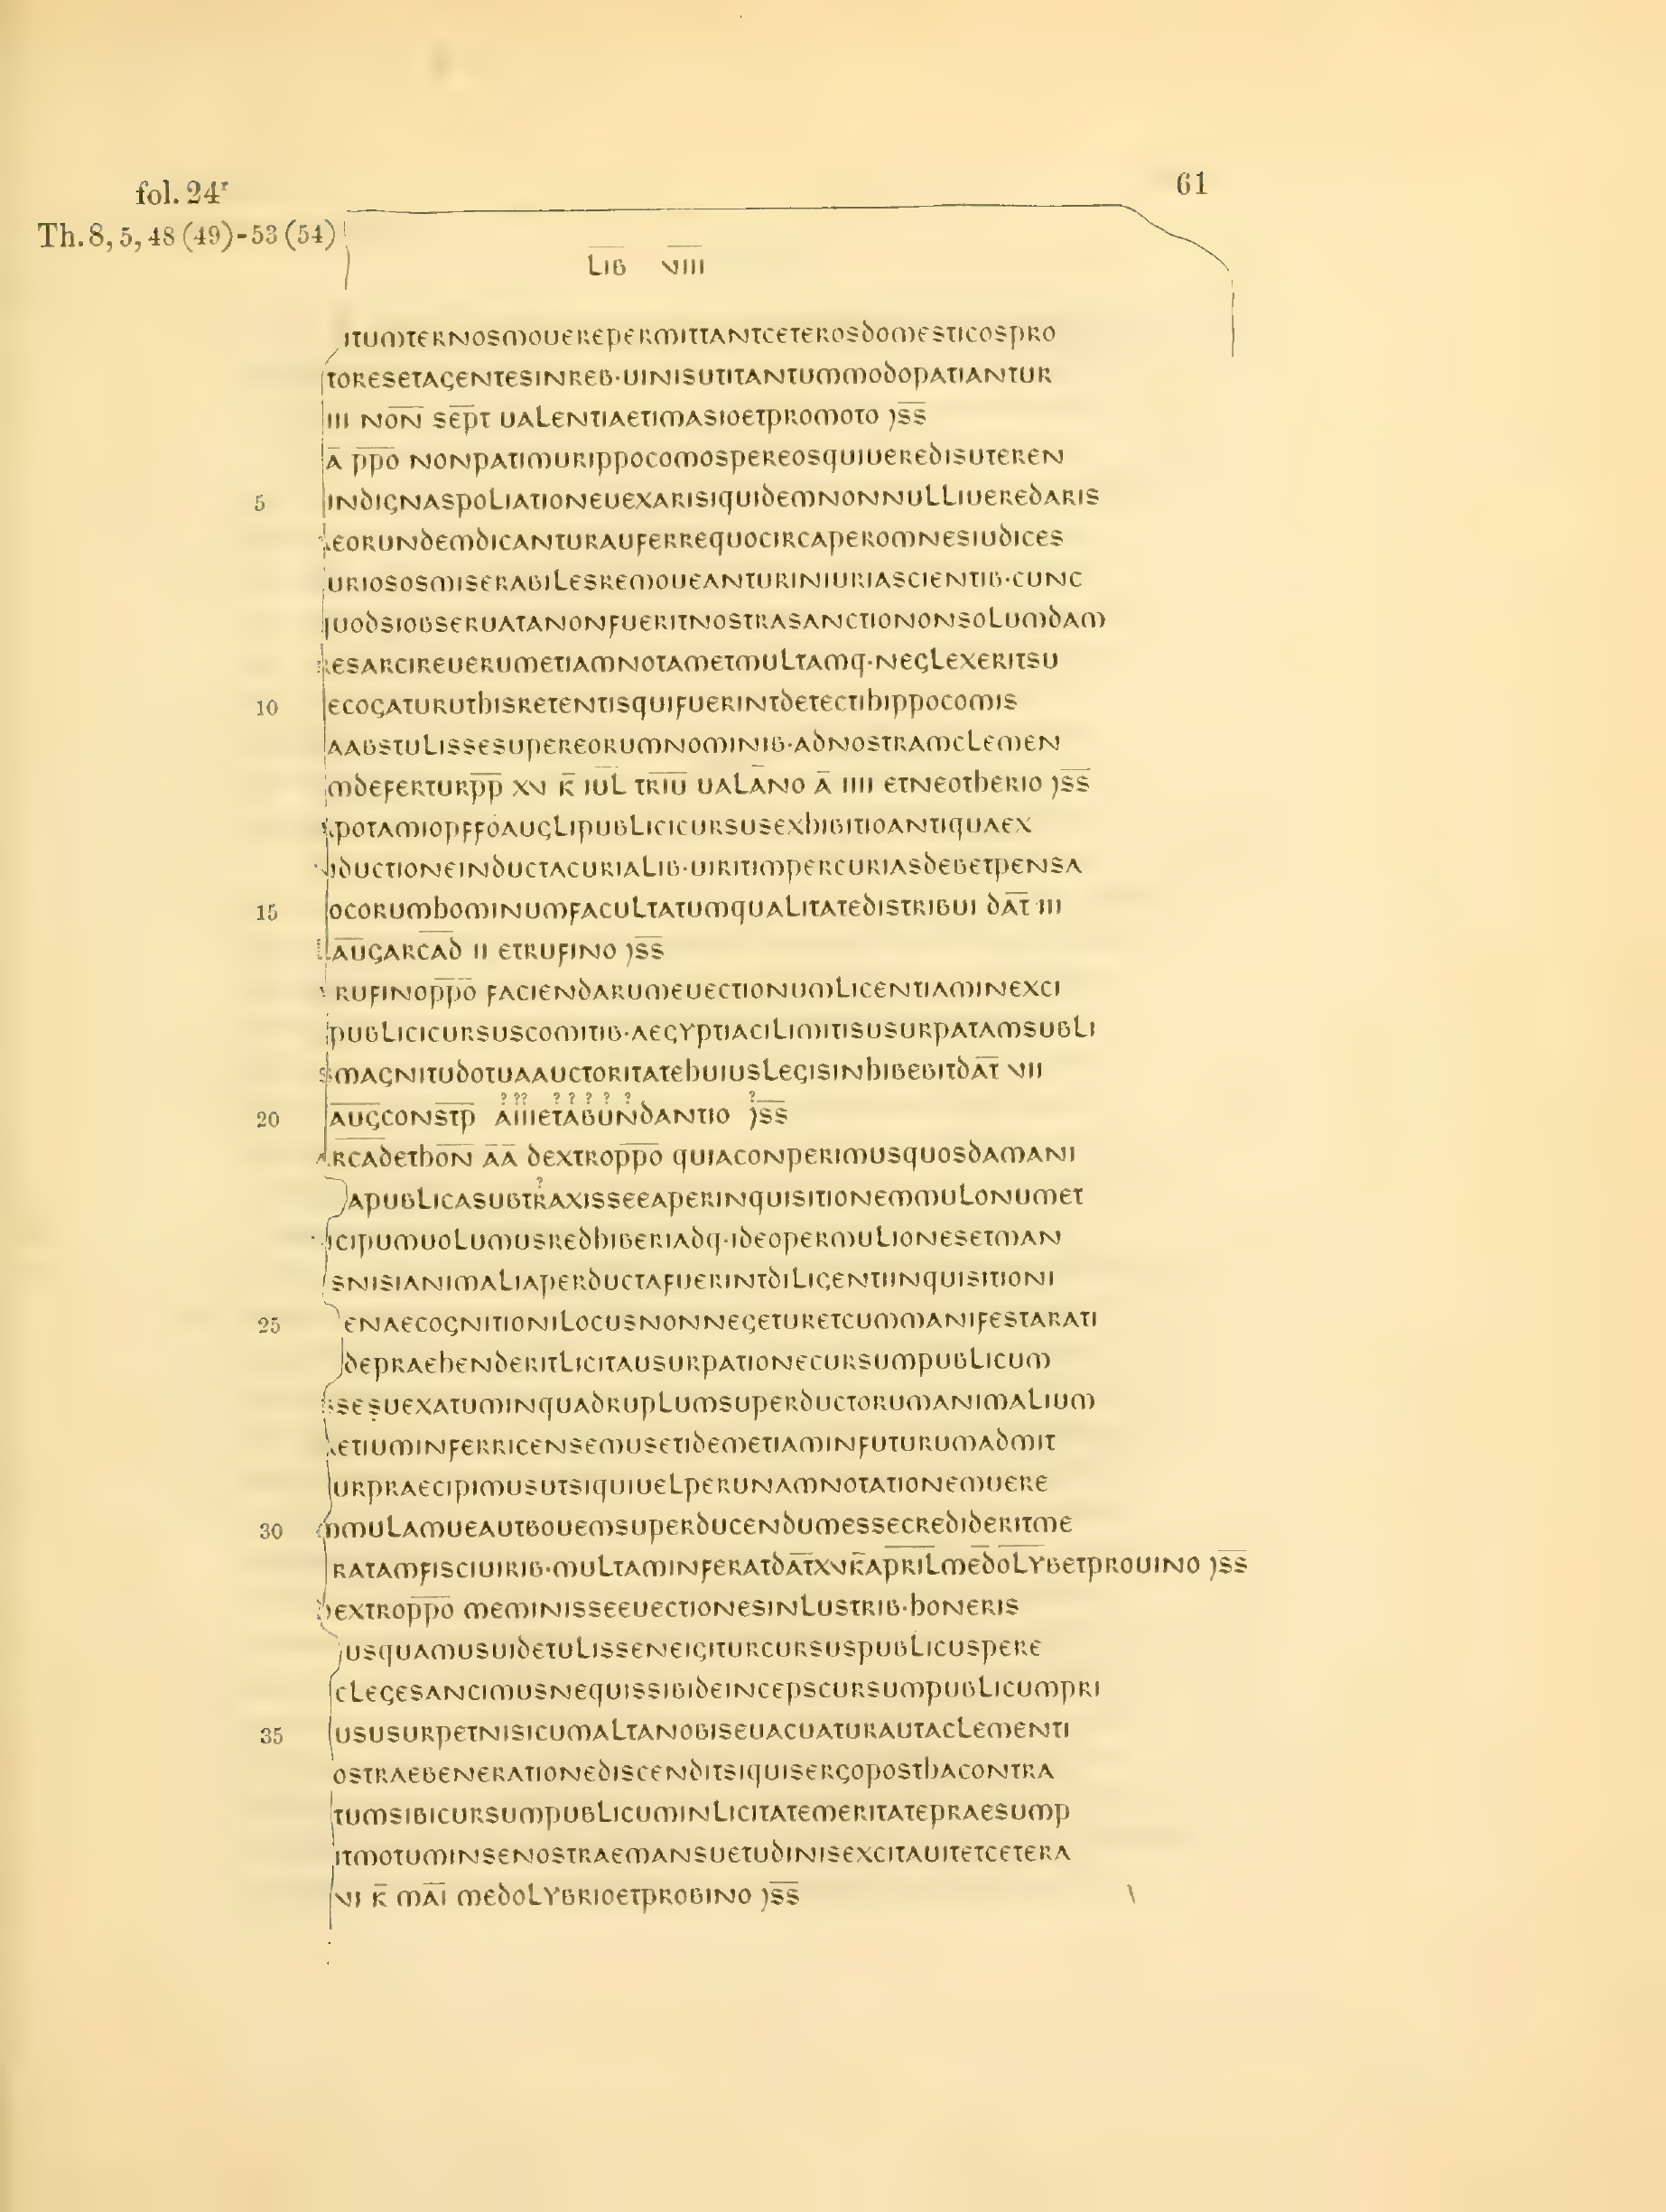 fol. 24ʳ
61
Th. 8, 5, 48 (49)-53 (54)
LIB VIII
ITUMTERNOSMOUEREPERMITTANTCETEROSDOMESTICOSPRO
TORESETAGENTESINREB·UINISUTITANTUMMODOPATIANTUR
III NON̅ SEP̅T UALENTIAETIMASIOETPROMOTO )S̅S̅
A̅ P̅P̅O̅ NONPATIMURIPPOCOMOSPEREOSQUIUEREDISUTEREN
5 INDIGNASPOLIATIONEUEXARISIQUIDEMNONNULLIUEREDARIS
EORUNDEMDICANTURAUFERREQUOCIRCAPEROMNESIUDICES
URIOSOSMISERABILESREMOUEANTURINIURIASCIENTIB·CUNC
UODSIOBSERUATANONFUERITNOSTRASANCTIONONSOLUMDAM
RESARCIREUERUMETIAMNOTAMETMULTAMQ·NEGLEXERITSU
10 ECOGATURUTHISRETENTISQUIFUERINTDETECTIHIPPOCOMIS
AABSTULISSESUPEREORUMNOMINIB·ADNOSTRAMCLEMEN
MDEFERTURP̅P̅ XV K̅ IU̅L̅ TRI̅U̅ UALA̅NO A̅ IIII ETNEOTHERIO )S̅S̅
POTAMIOPFFOAUGLIPUBLICICURSUSEXHIBITIOANTIQUAEX
DUCTIONEINDUCTACURIALIB·UIRITIMPERCURIASDEBETPENSA
15 OCORUMHOMINUMFACULTATUMQUALITATEDISTRIBUI DA̅T̅ III
A̅U̅GARCA̅D̅ II ETRUFINO )S̅S̅
RUFINOP̅P̅O̅ FACIENDARUMEUECTIONUMLICENTIAMINEXCI
PUBLICICURSUSCOMITIB·AEGYPTIACILIMITISUSURPATAMSUBLI
SMAGNITUDOTUAAUCTORITATEHUIUSLEGISINHIBEBITDA̅T̅ VII
? ? ? ? ? ? ? ? ?
20 A̅U̅G̅CONST̅P̅ A̅IIIETABUNDANTIO )S̅S̅
ARCA̅D̅ETHO̅N̅ A̅A̅ DEXTROP̅P̅O̅ QUIACONPERIMUSQUOSDAMANI
?
APUBLICASUBTRAXISSEEAPERINQUISITIONEMMULONUMET
CIPUMUOLUMUSREDHIBERIADQ·IDEOPERMULIONESETMAN
SNISIANIMALIAPERDUCTAFUERINTDILIGENTIINQUISITIONI
25 ENAECOGNITIONILOCUSNONNEGETURETCUMMANIFESTARATI
DEPRAEHENDERITLICITAUSURPATIONECURSUMPUBLICUM
SESUEXATUMINQUADRUPLUMSUPERDUCTORUMANIMALIUM
ETIUMINFERRICENSEMUSETIDEMETIAMINFUTURUMADMIT
URPRAECIPIMUSUTSIQUIUELPERUNAMNOTATIONEMUERE
30 MMULAMUEAUTBOUEMSUPERDUCENDUMESSECREDIDERITME
RATAMFISCIUIRIB·MULTAMINFERATDA̅T̅XVK̅APRI̅L̅MED̅OL̅Y̅BETPROUINO )S̅S̅
DEXTROP̅P̅O̅ MEMINISSEEUECTIONESINLUSTRIB·HONERIS
USQUAMUSUIDETULISSENEIGITURCURSUSPUBLICUSPERE
CLEGESANCIMUSNEQUISSIBIDEINCEPSCURSUMPUBLICUMPRI
35 USUSURPETNISICUMALTANOBISEUACUATURAUTACLEMENTI
OSTRAEBENERATIONEDISCENDITSIQUISERGOPOSTHACONTRA
TUMSIBICURSUMPUBLICUMINLICITATEMERITATEPRAESUMP
ITMOTUMINSENOSTRAEMANSUETUDINISEXCITAUITETCETERA
VI K̅ MA̅I̅ MEDOLYBRIOETPROBINO )S̅S̅